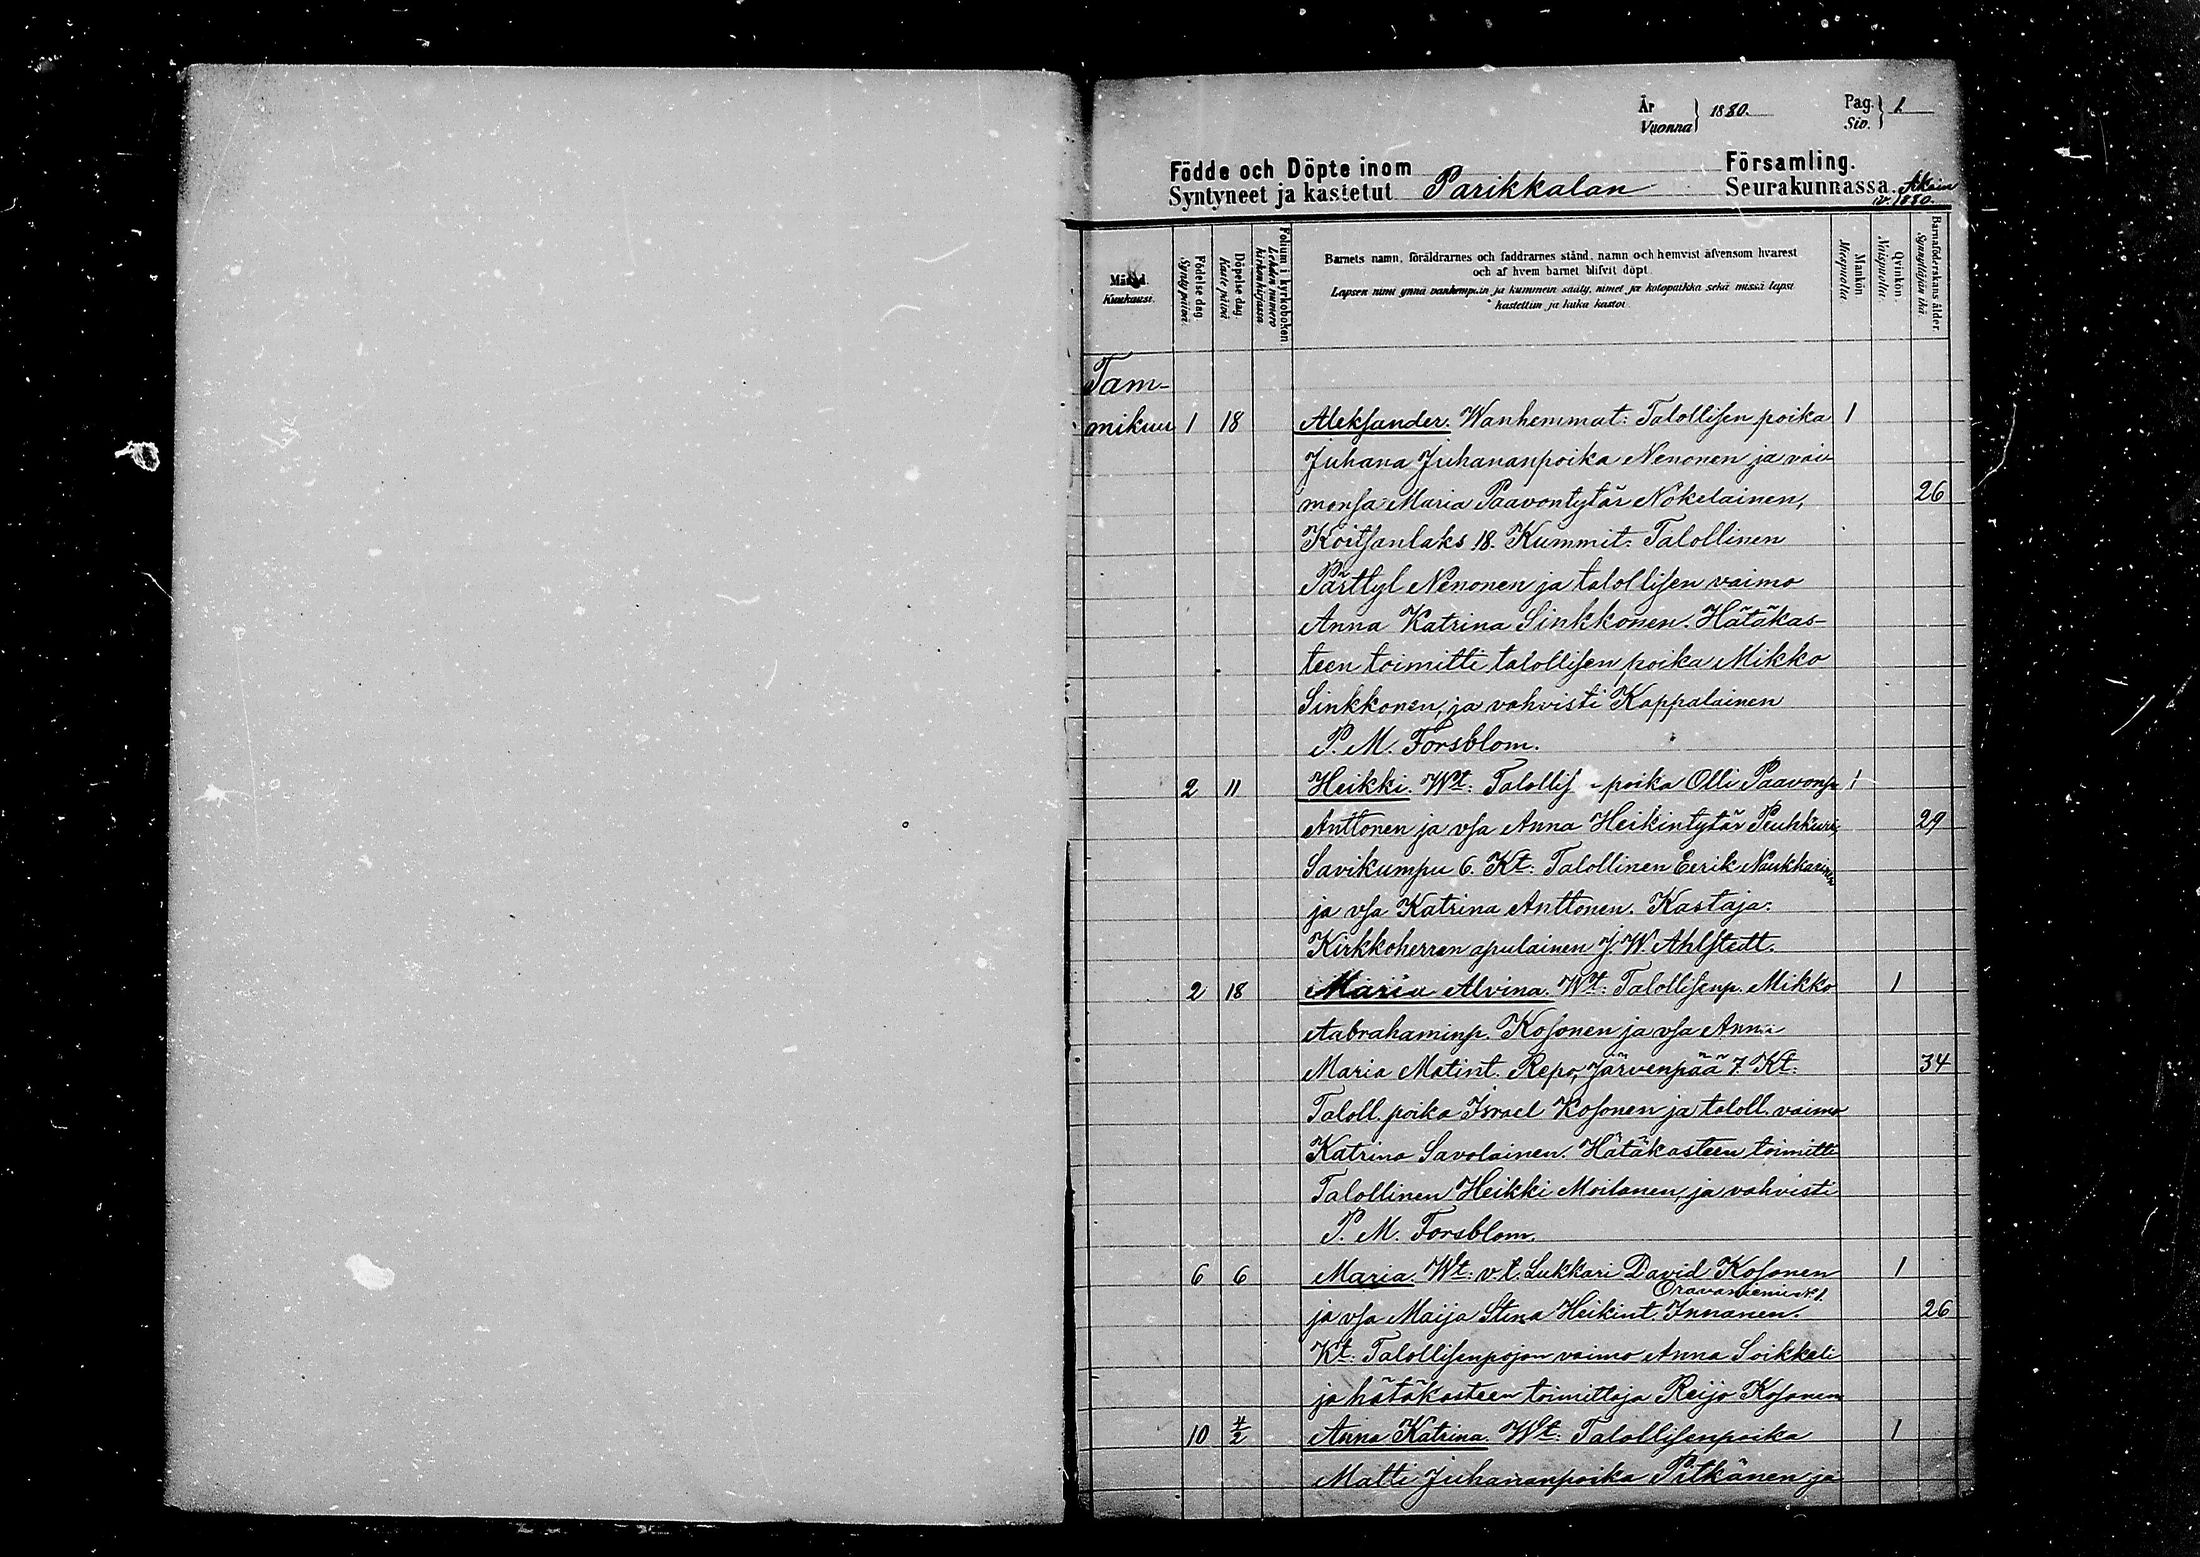 År Vuonna } 1880. Pag. Siv. } 1.
Födde och Döpte inom Församling.
Syntyneet ja kastetut Parikkalan Seurakunnassa
v. 1880.
Månad. Kuukausi.
Födelse dag. Synty päivä.
Döpelse dag. Kaste päivä
Folium i kyrkoboken Lehden numero kirkonkirjassa
Barnets namn, föräldrarnes och faddrarnes stånd, namn och hemvist äfvensom hvarest
och af hvem barnet blifvit döpt.
Lapsen nimi ynnä vanhempain ja kummein sääty, nimet ja kotopaikka sekä missä lapsi
kastettiin ja kuka kastoi.
Mankön Miespuolta.
Qvinkön. Naispuolta.
Barnaföderskans ålder. Synnyttäjän ikä.
Tam-
mikuu 1 18 Aleksander. Wanhemmat: Talollisen poika 1
Juhana Juhananpoika Nenonen ja vai
monsa Maria Paavontytär Nokelainen, 26
Koitsanlaks 18. Kummit: Talollinen
Pärttyl Nenonen ja talollisen vaimo
Anna Katrina Sinkkonen. Hätäkas-
teen toimitti talollisen poika Mikko
Sinkkonen, ja vahvisti Kappalainen
P. M. Forsblom.
2 11 Heikki. Wt: Talollis - poika Olli Paavonp 1
Anttonen ja vsa Anna Heikintytär Puhkuri, 29
Savikumpu 6. Kt: Talollinen Eerik Naukkarinen
ja vsa Katrina Anttonen. Kastaja:
Kirkkoherran apulainen J. W. Ahlstedt.
2 18 Maria Alvina. Wt: Talollisenp. Mikko 1
Aabrahaminp. Kosonen ja vsa Anna
Maria Matint. Repo, Järvenpää 7. Kt: 34
Taloll. poika Israel Kosonen ja taloll. vaimo
Katrina Savolainen. Hätäkasteen toimitti
Talollinen Heikki Moilanen, ja vahvisti
P. M. Forsblom.
6 6 Maria. Wt: v. t. Lukkari David Kosonen 1
Oravaniemi N:o 1.
ja vsa Maija Stina Heikint. Innanen. 26
Kt: Talollisenpojan vaimo Anna Soikkeli
ja hätäkasteen toimittaja Reijo Kosonen
10 4/2 Anna Katrina. Wt: Talollisenpoika 1
Matti Juhananpoika Pitkänen ja